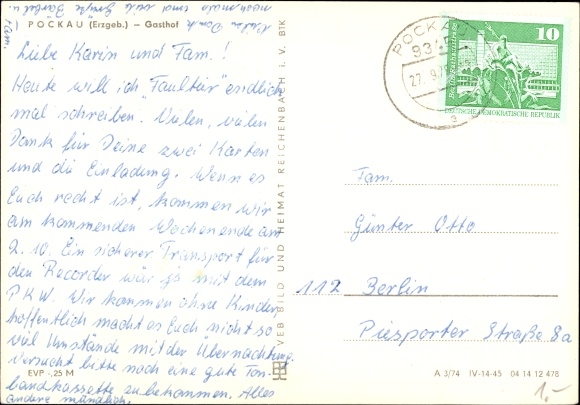 nochmals und viele Grüße Bärbel u.
Fam.
Vielen Dank
POCKAU (Erzgeb.) – Gasthof
Liebe Karin und Fam.!
Heute will ich "Faultier" endlich
mal schreiben. Vielen, vielen
Dank für Deine zwei Karten
und die Einladung. Wenn es
Euch recht ist, kommen wir
am kommenden Wochenende am
2.10. Ein sicherer Transport für
den Recorder wär js mit dem
PKW. Wir kommen ohne Kinder,
hoffentlich macht es Euch nicht so
viel Umstände mit der Übernachtung.
Versucht bitte noch eine gute Ton-
bandkassette zu bekommen. Alles
andere mündlich.
EVP -.25 M
VEB BILD UND HEIMAT REICHENBACH i. V. BTK
POCKAU
9345
27.9.
a
10
DEUTSCHE DEMOKRATISCHE REPUBLIK
Fam.
Günter Otto
112 Berlin
Piesporter Straße 8a
A 3/74 IV-14-45 04 14 12 478
1,-